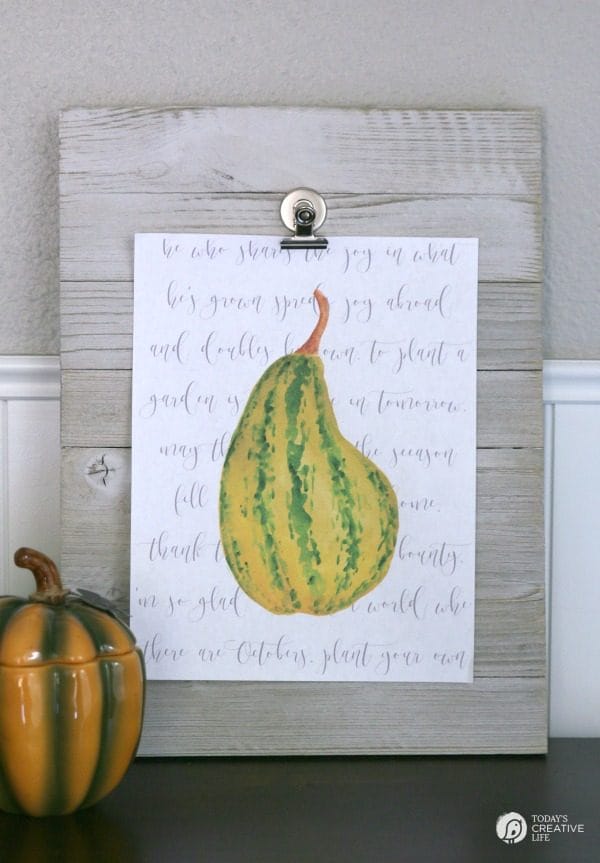 he who shares the joy in what
he's grown spreads joy abroad
and doubles his own. to plant a
garden is in tomorrow.
may th the season
fill home.
thank bounty.
i'm so glad world whe
there are Octobers. plant your own
TODAY'S
CREATIVE
LIFE